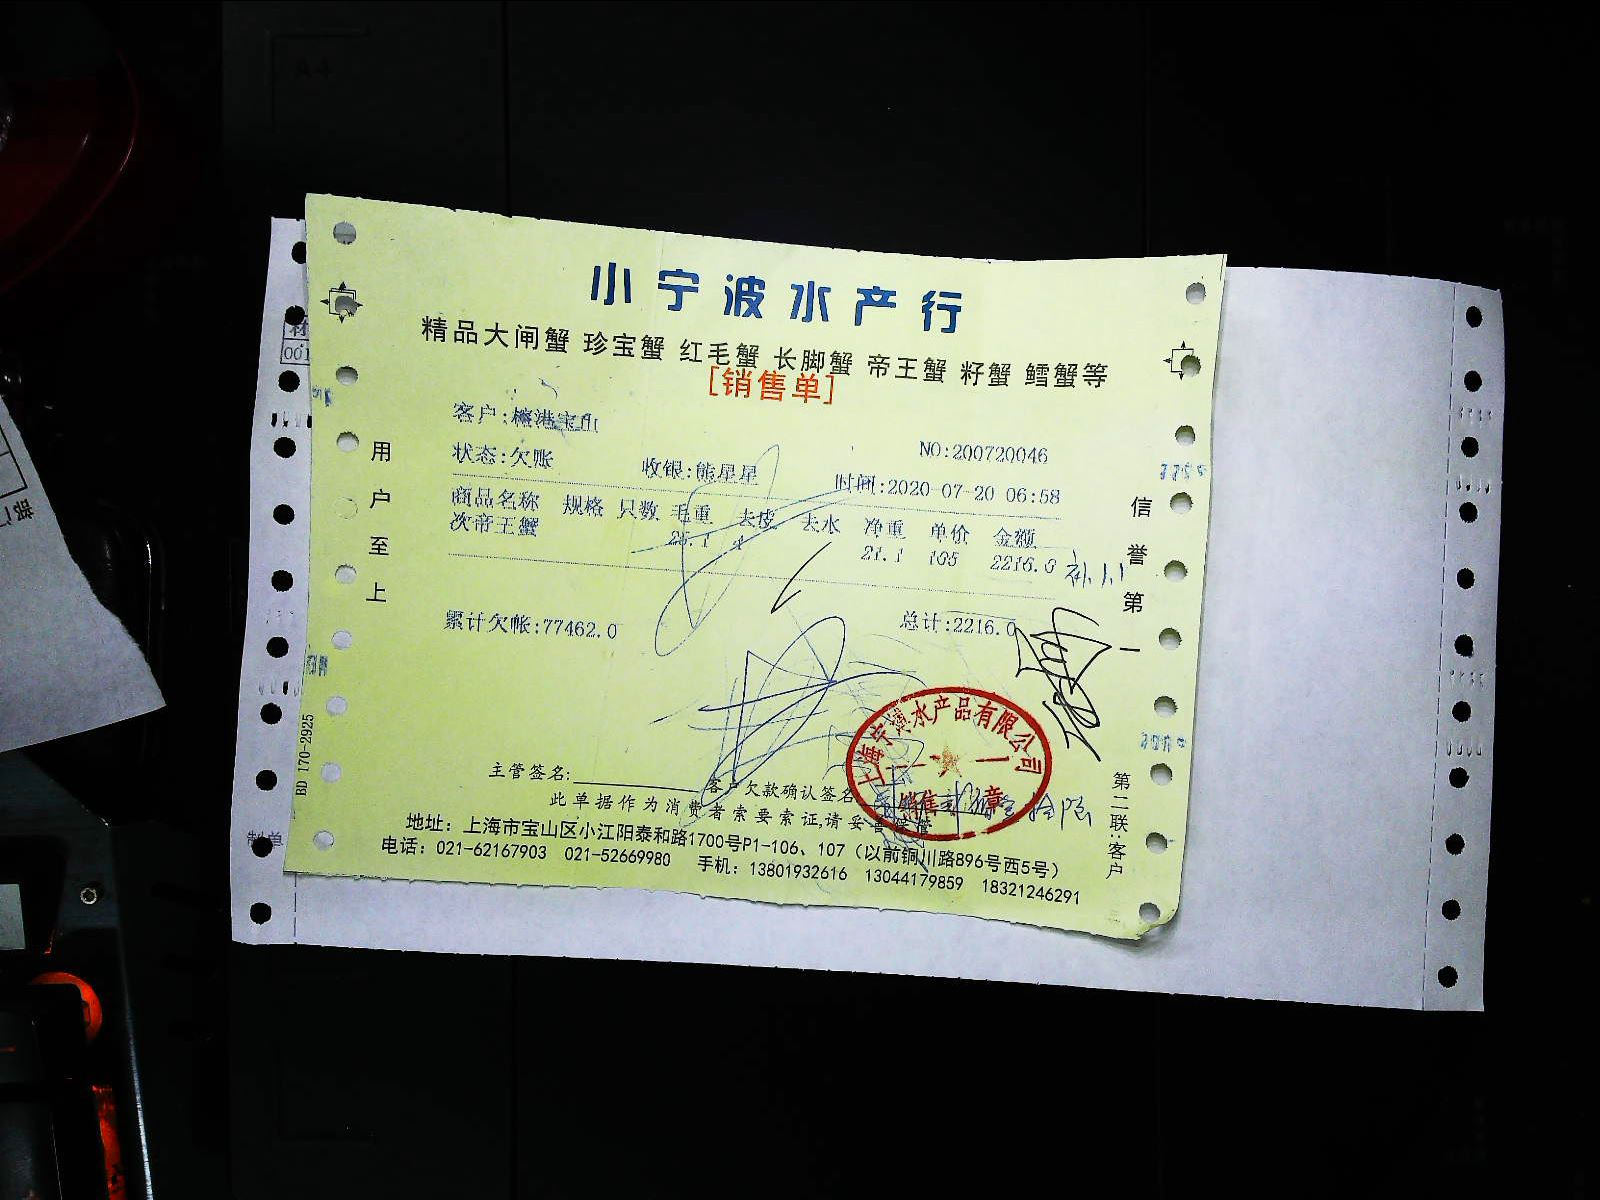 小宁波水产行
精品大闸蟹 珍宝蟹 红毛蟹 长脚蟹 帝王蟹 籽蟹 鳕蟹等
[销售单]
客户:榕港宝山
NO:200720046
状态:欠账 收银:熊星星 时间:2020-07-20 06:58
商品名称 规格 只数 毛重 去皮 去水 净重 单价 金额
次帝王蟹 25.1 4 21.1 105 2216.0
累计欠帐:77462.0 总计:2216.0
用户至上
信誉第一
上海宁波水产品有限公司
销售 章
主管签名: 客户欠款确认签名
此单据作为消费者索要索证,请妥善保管
地址：上海市宝山区小江阳泰和路1700号P1-106、107（以前铜川路896号西5号）
电话：021-62167903 021-52669980 手机：13801932616 13044179859 18321246291
第二联:客户
BD 170-2925
001
制单